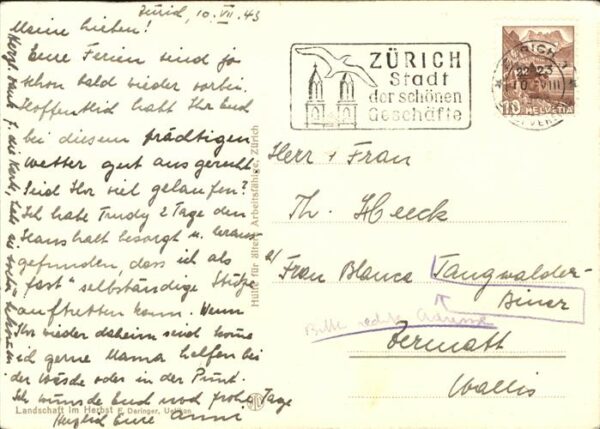 Zürich, 10. VII. 43
Meine Lieben!
Eure Ferien sind ja
schon bald wieder vorbei.
Hoffentlich habt Ihr Euch
bei diesem prächtigen
Wetter gut ausgeruht.
Seid Ihr viel gelaufen?
Ich habe Trudy 2 Tage den
Haushalt besorgt u. heraus-
gefunden, dass ich als
"fast" selbständige Stütze
auftretten kann. Wenn
Ihr wieder daheim seid komme
ich gerne Mama helfen bei
der Wäsche oder in der
Ich wünsche Euch noch frohe Tage
Herzlich Eure Anni
Herzl. Dank f. die Karte, hat
Landschaft im Herbst E. Deringer, Uetikon
Hülfe für ältere Arbeitsfähige, Zürich
ZÜRICH
Stadt
der schönen
Geschäfte
ZÜRICH
22-23
10. VIII
10 HELVETIA
Herr + Frau
Th. Heeck
a/
Frau Blanca Taugwalder-
Biner
Bitte Adresse
Zermatt
Wallis